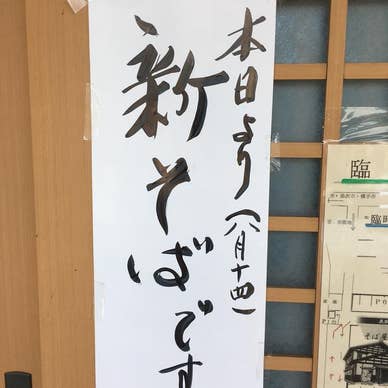 本日より(八月十四)
新そばです
臨
臨
P
そば屋